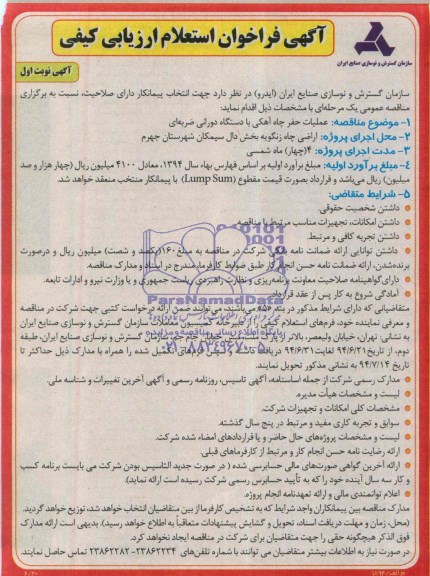 آگهی فراخوان استعلام ارزیابی کیفی
سازمان گسترش و نوسازی صنایع ایران
آگهی نوبت اول
سازمان گسترش و نوسازی صنایع ایران (ایدرو) در نظر دارد جهت انتخاب پیمانکار دارای صلاحیت، نسبت به برگزاری
مناقصه عمومی یک مرحله‌ای با مشخصات ذیل اقدام نماید:
۱- موضوع مناقصه: عملیات حفر چاه آهکی با دستگاه دورانی ضربه‌ای
۲- محل اجرای پروژه: اراضی چاه زنگویه بخش دال سیمکان شهرستان جهرم
۳- مدت اجرای پروژه: ۴(چهار) ماه شمسی
۴- مبلغ برآورد اولیه: مبلغ برآورد اولیه بر اساس فهارس بهاء سال ۱۳۹۴، معادل ۴۱۰۰ میلیون ریال (چهار هزار و صد
میلیون) ریال می‌باشد و قرارداد بصورت قیمت مقطوع (Lump Sum) با پیمانکار منتخب منعقد خواهد شد.
۵- شرایط متقاضی:
داشتن شخصیت حقوقی.
داشتن امکانات، تجهیزات مناسب مرتبط با مناقصه.
داشتن تجربه کافی و مرتبط.
داشتن توانایی ارائه ضمانت نامه بانکی شرکت در مناقصه به مبلغ ۱۶۰(یکصد و شصت) میلیون ریال و درصورت
برنده‌شدن، ارائه ضمانت نامه حسن انجام کار طبق ضوابط کارفرما، مندرج در اسناد و مدارک مناقصه.
دارای گواهینامه صلاحیت معاونت برنامه‌ریزی و نظارت راهبردی ریاست جمهوری و یا وزارت نیرو و ادارات تابعه.
آمادگی شروع به کار پس از عقد قرارداد.
متقاضیانی که دارای شرایط مذکور در بند می‌باشند، می‌توانند ضمن ارائه درخواست کتبی جهت شرکت در مناقصه
و معرفی نماینده خود، فرم‌های استعلام کیفی را از دبیرخانه کمیسیون معاملات سازمان گسترش و نوسازی صنایع ایران
به نشانی: تهران، خیابان ولیعصر، بالاتر از پارک ملت، خیابان جام جم، سازمان گسترش و نوسازی صنایع ایران، طبقه
دوم، از تاریخ ۹۴/۶/۲۱ لغایت ۹۴/۶/۳۱ دریافت نموده و فرم‌های تکمیل شده را همراه با مدارک ذیل حداکثر تا
تاریخ ۹۴/۷/۱۴ به نشانی مذکور تحویل نمایند.
مدارک رسمی شرکت از جمله اساسنامه، آگهی تاسیس، روزنامه رسمی و آگهی آخرین تغییرات و شناسه ملی.
لیست و مشخصات هیأت مدیره.
مشخصات کلی امکانات و تجهیزات شرکت.
سوابق و تجربه کاری مفید و مرتبط در پنج سال گذشته.
لیست و مشخصات پروژه‌های حال حاضر و یا قراردادهای امضاء شده شرکت.
ارائه رضایت نامه حسن انجام کار و مرتبط از کارفرماهای قبلی.
ارائه آخرین گواهی صورت‌های مالی حسابرسی شده ( در صورت جدید التاسیس بودن شرکت می بایست برنامه کسب
و کار سه سال آینده خود را که به تأیید حسابرس رسمی شرکت رسیده است ارائه نماید).
اعلام توانمندی مالی و ارائه تعهدنامه انجام پروژه.
مدارک مناقصه بین پیمانکاران واجد شرایط که به تشخیص کارفرما از بین متقاضیان انتخاب خواهد شد، توزیع خواهد گردید.
(محل، زمان و مهلت دریافت اسناد، تحویل و گشایش پیشنهادات متعاقباً به اطلاع خواهد رسید). بدیهی است ارائه مدارک
فوق الذکر هیچگونه حقی را جهت متقاضیان برای شرکت در مناقصه ایجاد نخواهد کرد.
در صورت نیاز به اطلاعات بیشتر متقاضیان می توانند با شماره تلفن‌های ۲۳۸۶۲۲۳۴- ۲۳۸۶۲۲۸۲ تماس حاصل نمایند.
ParsNamadData